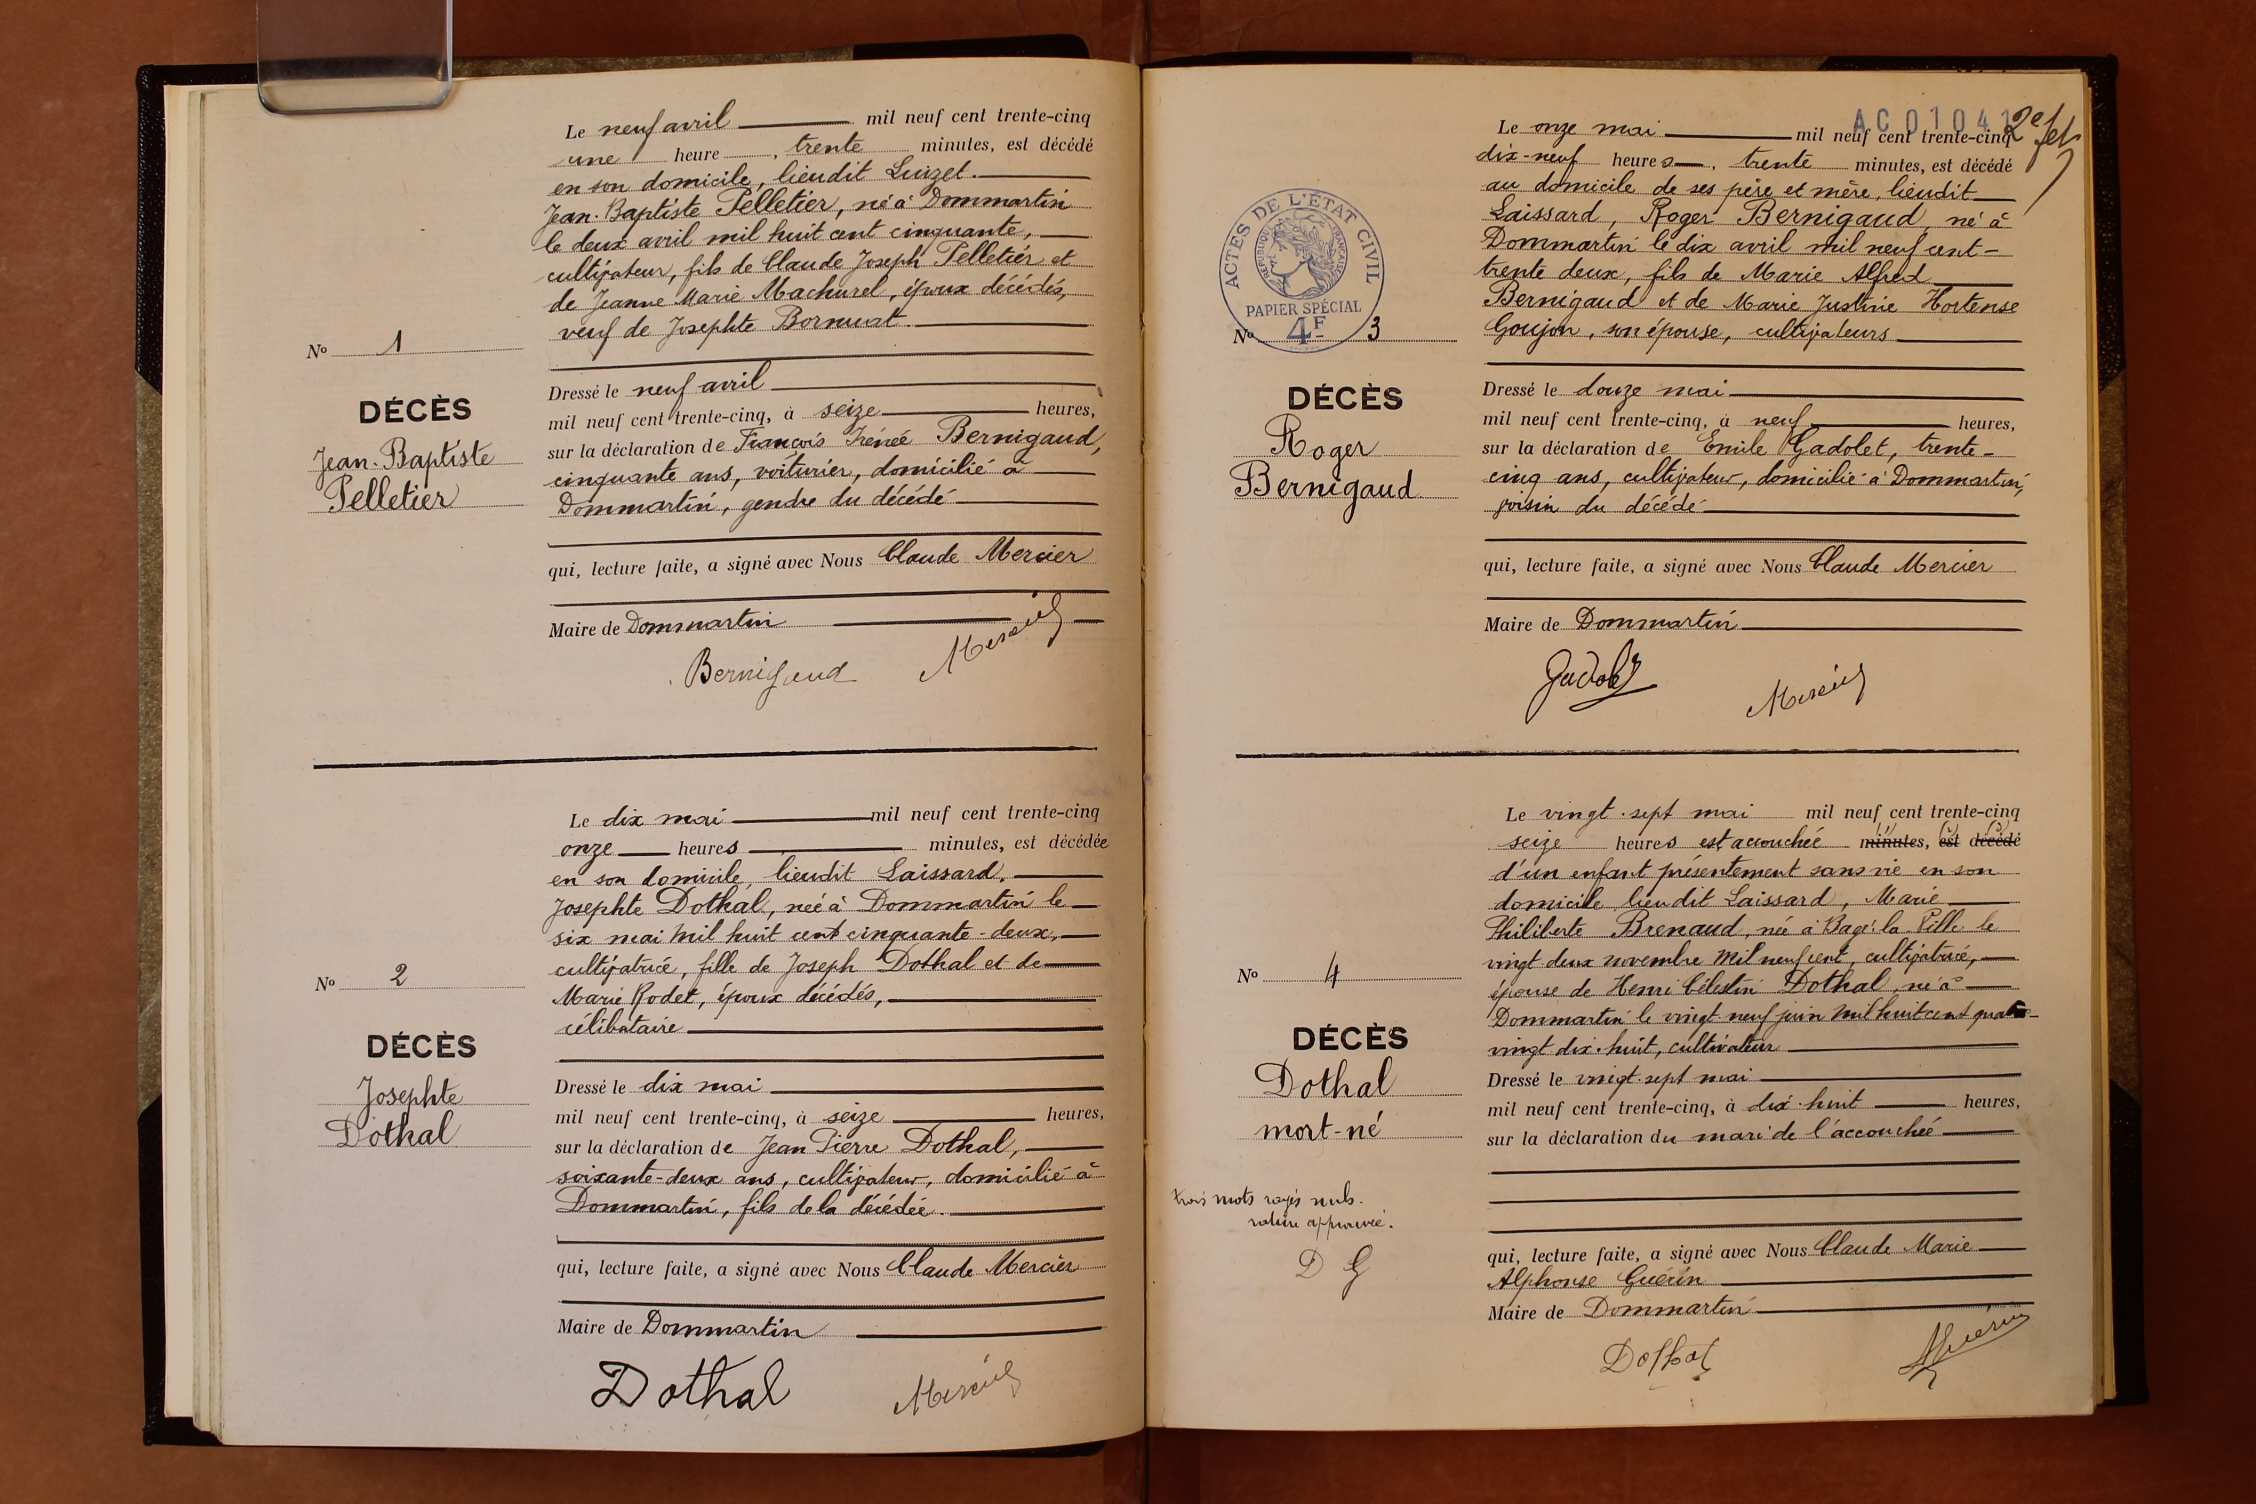 Le neuf avril mil neuf cent trente-cinq
une heure, trente minutes, est décédé
en son domicile, lieudit Luizet.
Jean-Baptiste Pelletier, né à Dommartin
le deux avril mil huit cent cinquante,
cultivateur, fils de Claude Joseph Pelletier et
de Jeanne Marie Machurel, époux décédés,
veuf de Josephte Bornuat.
No 1
DÉCÈS
Jean-Baptiste
Pelletier
Dressé le neuf avril
mil neuf cent trente-cinq, à seize heures,
sur la déclaration de François Irénée Bernigaud,
cinquante ans, voiturier, domicilié à
Dommartin, gendre du décédé
qui, lecture faite, a signé avec Nous Claude Mercier
Maire de Dommartin
Bernigaud Mercier
Le dix mai mil neuf cent trente-cinq
onze heures minutes, est décédée
en son domicile, lieudit Laissard.
Josephte Dothal, née à Dommartin le
six mai mil huit cent cinquante-deux,
cultivatrice, fille de Joseph Dothal et de
Marie Rodet, époux décédés,
célibataire
No 2
DÉCÈS
Josephte
Dothal
Dressé le dix mai
mil neuf cent trente-cinq, à seize heures,
sur la déclaration de Jean Pierre Dothal,
soixante-deux ans, cultivateur, domicilié à
Dommartin, fils de la décédée.
qui, lecture faite, a signé avec Nous Claude Mercier
Maire de Dommartin
Dothal Mercier
AC01041
2e fet
Le onze mai mil neuf cent trente-cinq
dix-neuf heures, trente minutes, est décédé
au domicile de ses père et mère, lieudit
Laissard, Roger Bernigaud, né à
Dommartin le dix avril mil neuf cent-
trente deux, fils de Marie Alfred
Bernigaud et de Marie Justine Hortense
Goujon, son épouse, cultivateurs
ACTES DE L'ÉTAT CIVIL
RÉPUBLIQUE FRANÇAISE
PAPIER SPÉCIAL
4F
No 3
DÉCÈS
Roger
Bernigaud
Dressé le douze mai
mil neuf cent trente-cinq, à neuf heures,
sur la déclaration de Emile Gadolet, trente-
cinq ans, cultivateur, domicilié à Dommartin,
voisin du décédé
qui, lecture faite, a signé avec Nous Claude Mercier
Maire de Dommartin
Mercier
Le vingt-sept mai mil neuf cent trente-cinq
seize heures est accouchée minutes, est décédé
d'un enfant présentement sans vie en son
domicile lieudit Laissard, Marie
Philiberte Brenaud, née à Bagé-la-Ville le
vingt-deux novembre mil neuf cent, cultivatrice,
épouse de Henri Célestin Dothal, né à
Dommartin le vingt-neuf juin mil huit cent quatre-
vingt dix-huit, cultivateur
No 4
DÉCÈS
Dothal
mort-né
Dressé le vingt-sept mai
mil neuf cent trente-cinq, à dix-huit heures,
sur la déclaration du mari de l'accouchée
trois mots rayés nuls.
rature approuvée.
D G
qui, lecture faite, a signé avec Nous Claude Marie
Alphonse Guérin
Maire de Dommartin
Dothal AGuérin